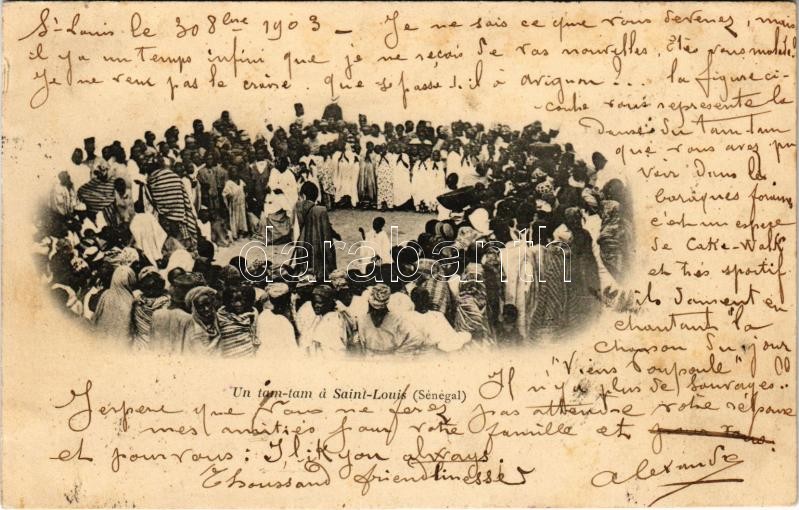 St Louis le 30 8bre 1903 - Je ne sais ce que vous devenez, mais
il y a un temps infini que je ne reçois de vos nouvelles. Etes vous malade?
Je ne veux pas le croire. que se passe t. il à Avignon?.. la figure ci-
contre vous représente la
Danse du tam tam
que vous avez pu
voir dans les
baraques foraines
c'est un espèce
de Cake-Walk
et très sportif
ils dansent en
chantant la
chanson du jour
"Viens Poupoule"
Il n'y a plus de Sauvages..
darabanth
Un tam-tam à Saint-Louis (Sénégal)
J'espère que vous ne ferez pas attendre votre réponse
mes amitiés pour votre famille et pour vous.
et pour vous: I lik you always.
Thoussand friendlinesses
Alexandre